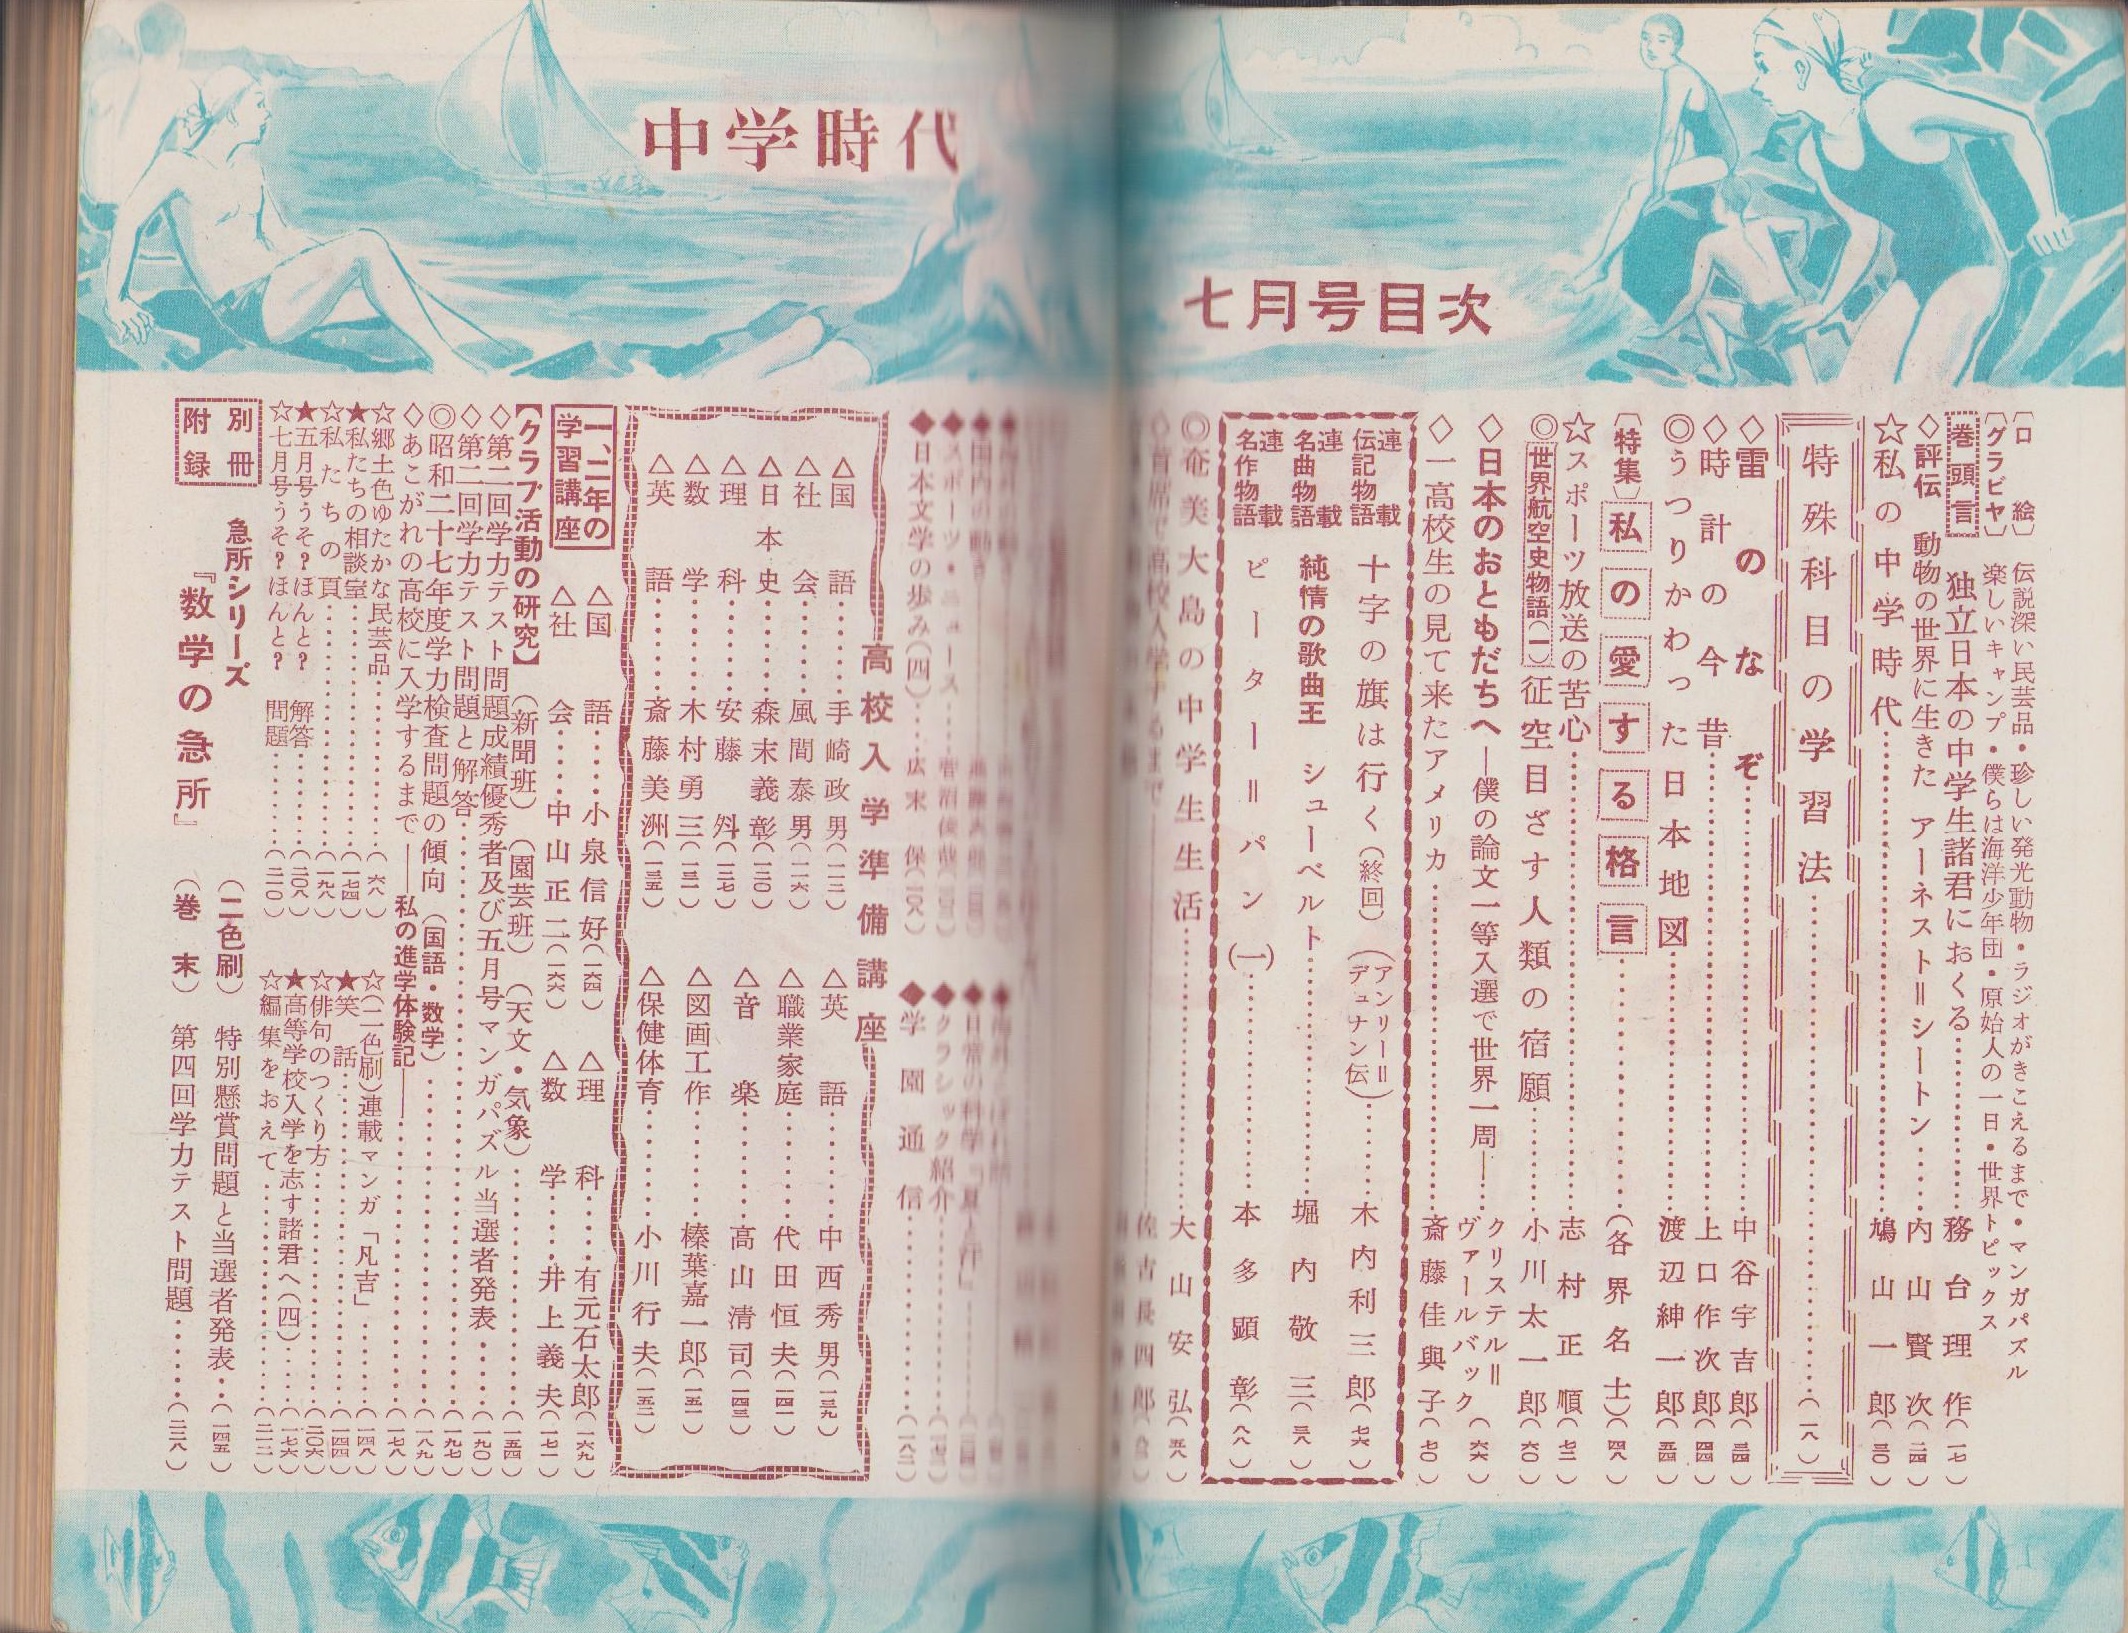 中学時代
七月号目次
〔口絵〕 伝説深い民芸品・珍しい発光動物・ラジオがきこえるまで・マンガパズル
〔グラビヤ〕 楽しいキャンプ・僕らは海洋少年団・原始人の一日・世界トピックス
巻頭言 独立日本の中学生諸君におくる……務台理作(一七)
◇評伝 動物の世界に生きた アーネスト＝シートン……内山賢次(二四)
☆私の中学時代……鳩山一郎(三〇)
特殊科目の学習法……(一八)
◇雷のなぞ……中谷宇吉郎(三四)
◇時計の今昔……上口作次郎(四四)
◎うつりかわった日本地図……渡辺紳一郎(五四)
〔特集〕 私の愛する格言……(各界名士)(四八)
☆スポーツ放送の苦心……志村正順(七二)
◎世界航空史物語(一) 征空目ざす人類の宿願……小川太一郎(六〇)
◇日本のおともだちへ―僕の論文一等入選で世界一周―……クリステル＝ヴァールバック(六六)
◇一高校生の見て来たアメリカ……斎藤佳與子(七〇)
連載伝記物語 十字の旗は行く(終回)(アンリー＝デュナン伝)……木内利三郎(七六)
連載名曲物語 純情の歌曲王 シューベルト……堀内敬三(三八)
連載名作物語 ピーター＝パン(一)……本多顕彰(八八)
◎奄美大島の中学生生活……大山安弘(五八)
◇首席で高校入学するまで……佐古長四郎
◆スポーツ・ニュース
◆日本文学の歩み(四)……広末保(一〇八)
◆日常の科学「夏と汗」
◆クラシック紹介
◆学園通信……(一八二)
高校入学準備講座
△国語……手崎政男(一一二)
△社会……風間泰男(一一六)
△日本史……森末義彰(一二〇)
△理科……安藤(一二七)
△数学……木村勇三(一三一)
△英語……斎藤美洲(一三五)
△英語……中西秀男(一三九)
△職業家庭……代田恒夫(一四一)
△音楽……高山清司(一四三)
△図画工作……榛葉嘉一郎(一五一)
△保健体育……小川行夫(一五二)
一、二年の学習講座
△国語……小泉信好(一六四)
△理科……有元石太郎(一六九)
△社会……中山正二(一六六)
△数学……井上義夫(一七一)
【クラブ活動の研究】(新聞班)(園芸班)(天文・気象)……(一五四)
◇第二回学力テスト問題成績優秀者及び五月号マンガパズル当選者発表……(一九〇)
◇第二回学力テスト問題と解答……(一九七)
◎昭和二十七年度学力検査問題の傾向(国語・数学)……(一八九)
◇あこがれの高校に入学するまで―私の進学体験記―……(一七八)
☆郷土色ゆたかな民芸品……(六八)
☆(二色刷)連載マンガ「凡吉」……(一四八)
★私たちの相談室……(一七四)
★笑話……(一四四)
☆私たちの頁……(一九八)
☆俳句のつくり方……(二〇六)
★五月号うそ？ほんと？ 解答……(二〇八)
★高等学校入学を志す諸君へ(四)……(一七六)
☆七月号うそ？ほんと？ 問題……(二一〇)
☆編集をおえて……(二一二)
別冊附録
急所シリーズ
『数学の急所』
(二色刷) 特別懸賞問題と当選者発表……(一四五)
(巻末) 第四回学力テスト問題……(二三八)